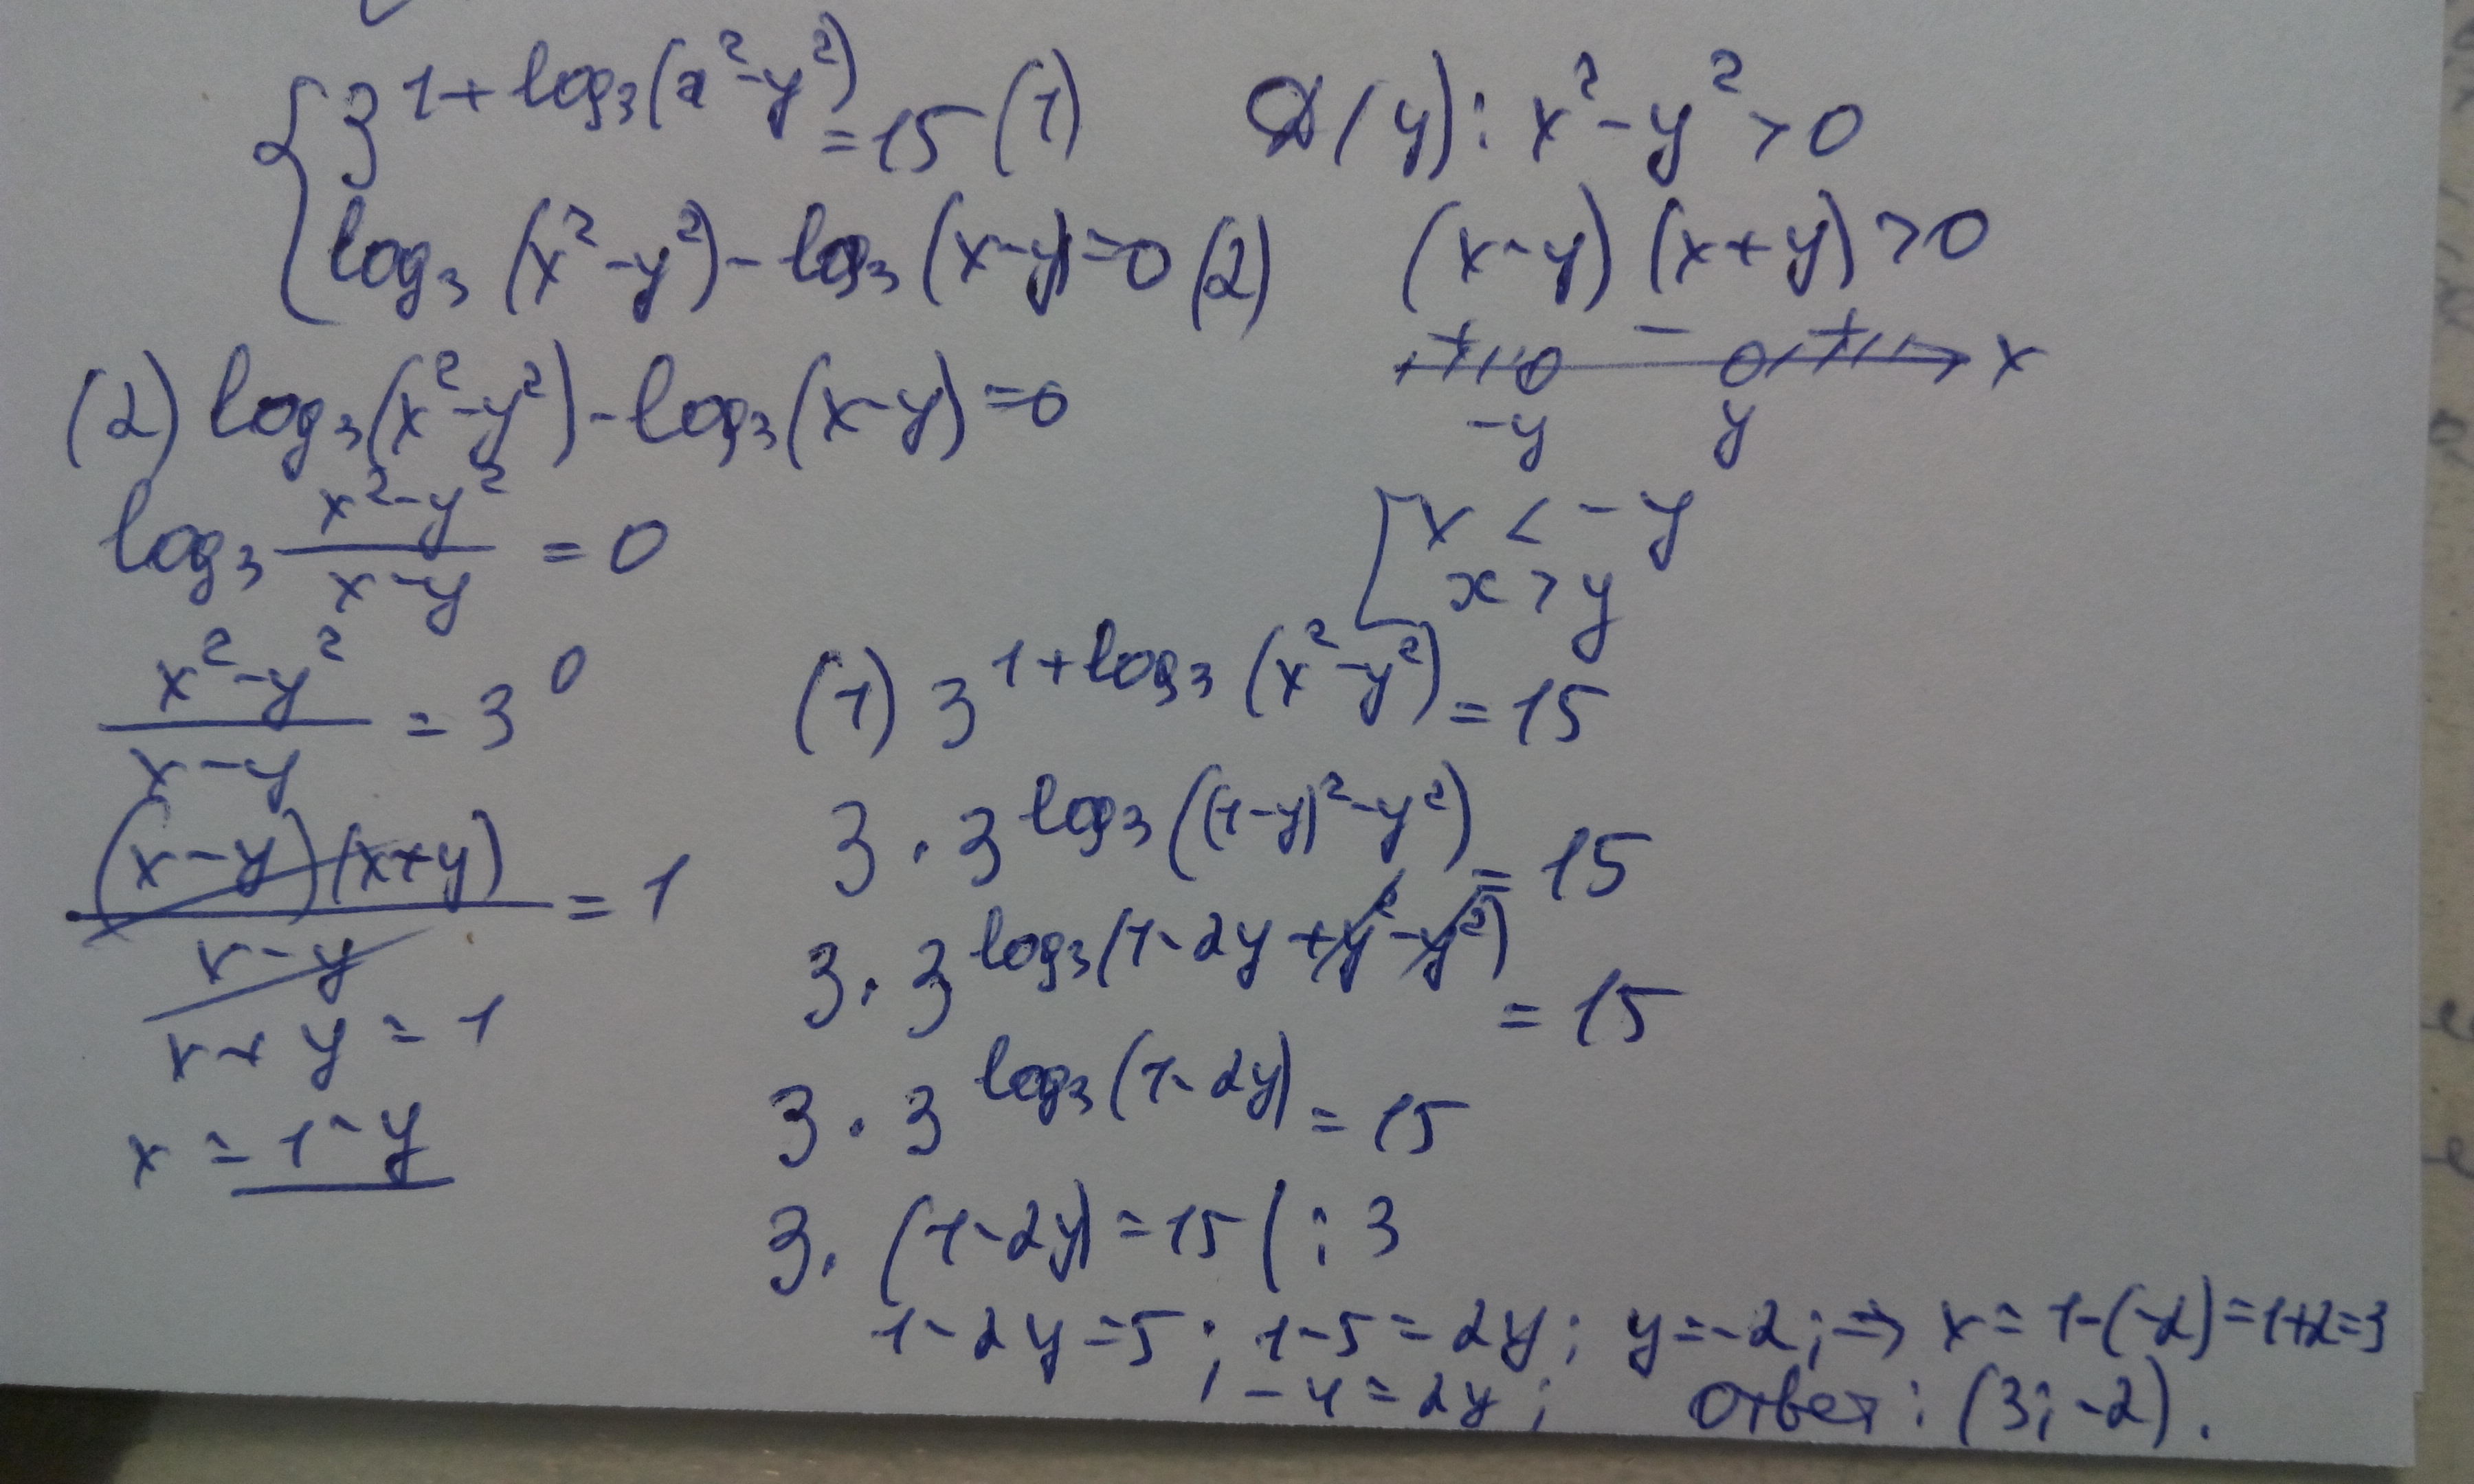 { 3^(1+log₃(x²-y²)) = 15 (1)
log₃(x²-y²) - log₃(x-y) = 0 (2)
D(y): x²-y² > 0
(x-y)(x+y) > 0
+ - + x
-y y
[ x < -y
x > y
(2) log₃(x²-y²) - log₃(x-y) = 0
log₃ (x²-y²)/(x-y) = 0
(x²-y²)/(x-y) = 3⁰
((x-y)(x+y))/(x-y) = 1
x+y = 1
x = 1-y
(1) 3^(1+log₃(x²-y²)) = 15
3·3^(log₃((1-y)²-y²)) = 15
3·3^(log₃(1-2y+y²-y²)) = 15
3·3^(log₃(1-2y)) = 15
3·(1-2y) = 15 | : 3
1-2y = 5; 1-5 = 2y; y = -2; ⇒ x = 1-(-2) = 1+2 = 3
-4 = 2y; Ответ: (3; -2).